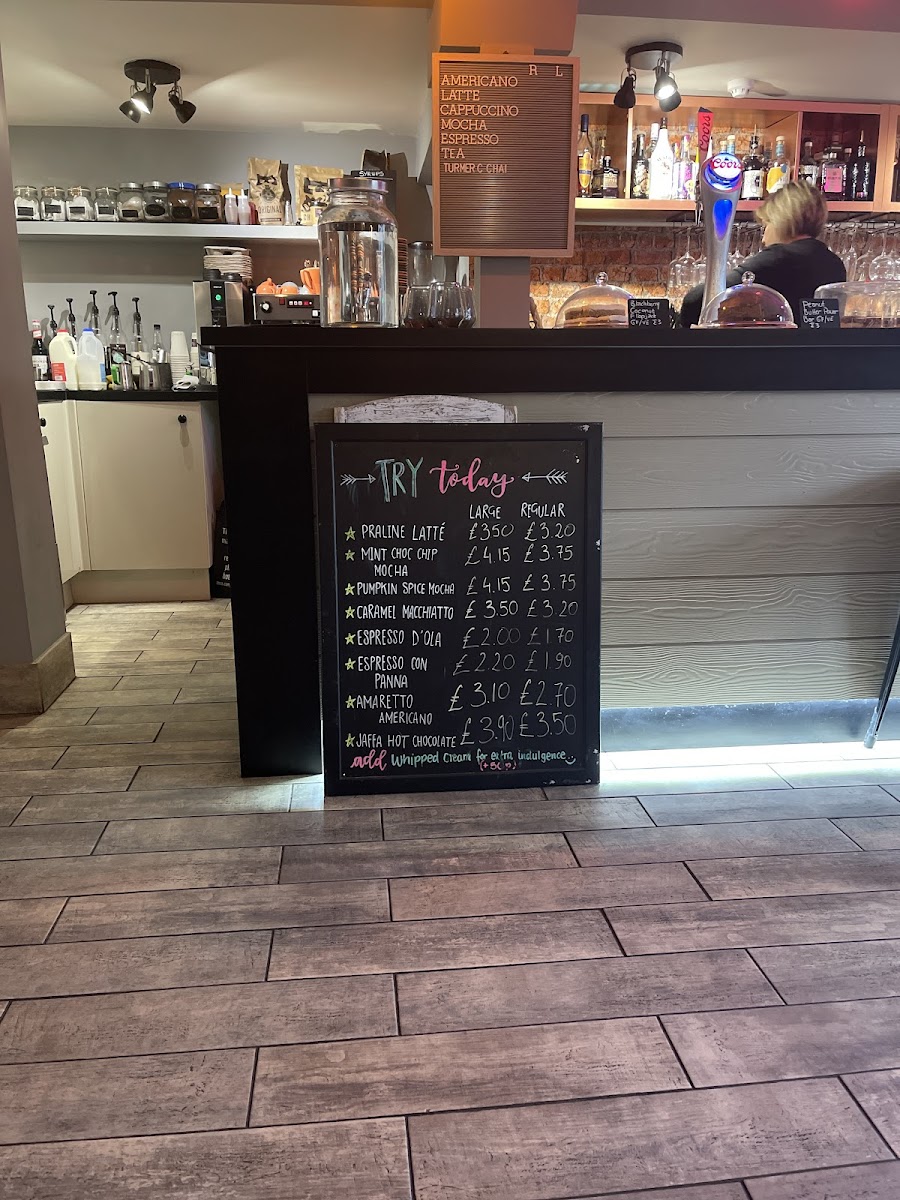 R L
AMERICANO
LATTE
CAPPUCCINO
MOCHA
ESPRESSO
TEA
TURMER C CHAI
SYRUPS
Coors
Coors
Blackberry
Coconut
Flapjack
GF/VE £3
Peanut
Butter Power
Bar GF/VE
£3
TRY today
LARGE REGULAR
PRALINE LATTÉ £3.50 £3.20
MINT CHOC CHIP £4.15 £3.75
MOCHA
PUMPKIN SPICE MOCHA £4.15 £3.75
CARAMEL MACCHIATTO £3.50 £3.20
ESPRESSO D'OLA £2.00 £1.70
ESPRESSO CON £2.20 £1.90
PANNA
AMARETTO £3.10 £2.70
AMERICANO
JAFFA HOT CHOCOLATE £3.90 £3.50
add Whipped Cream for extra indulgence